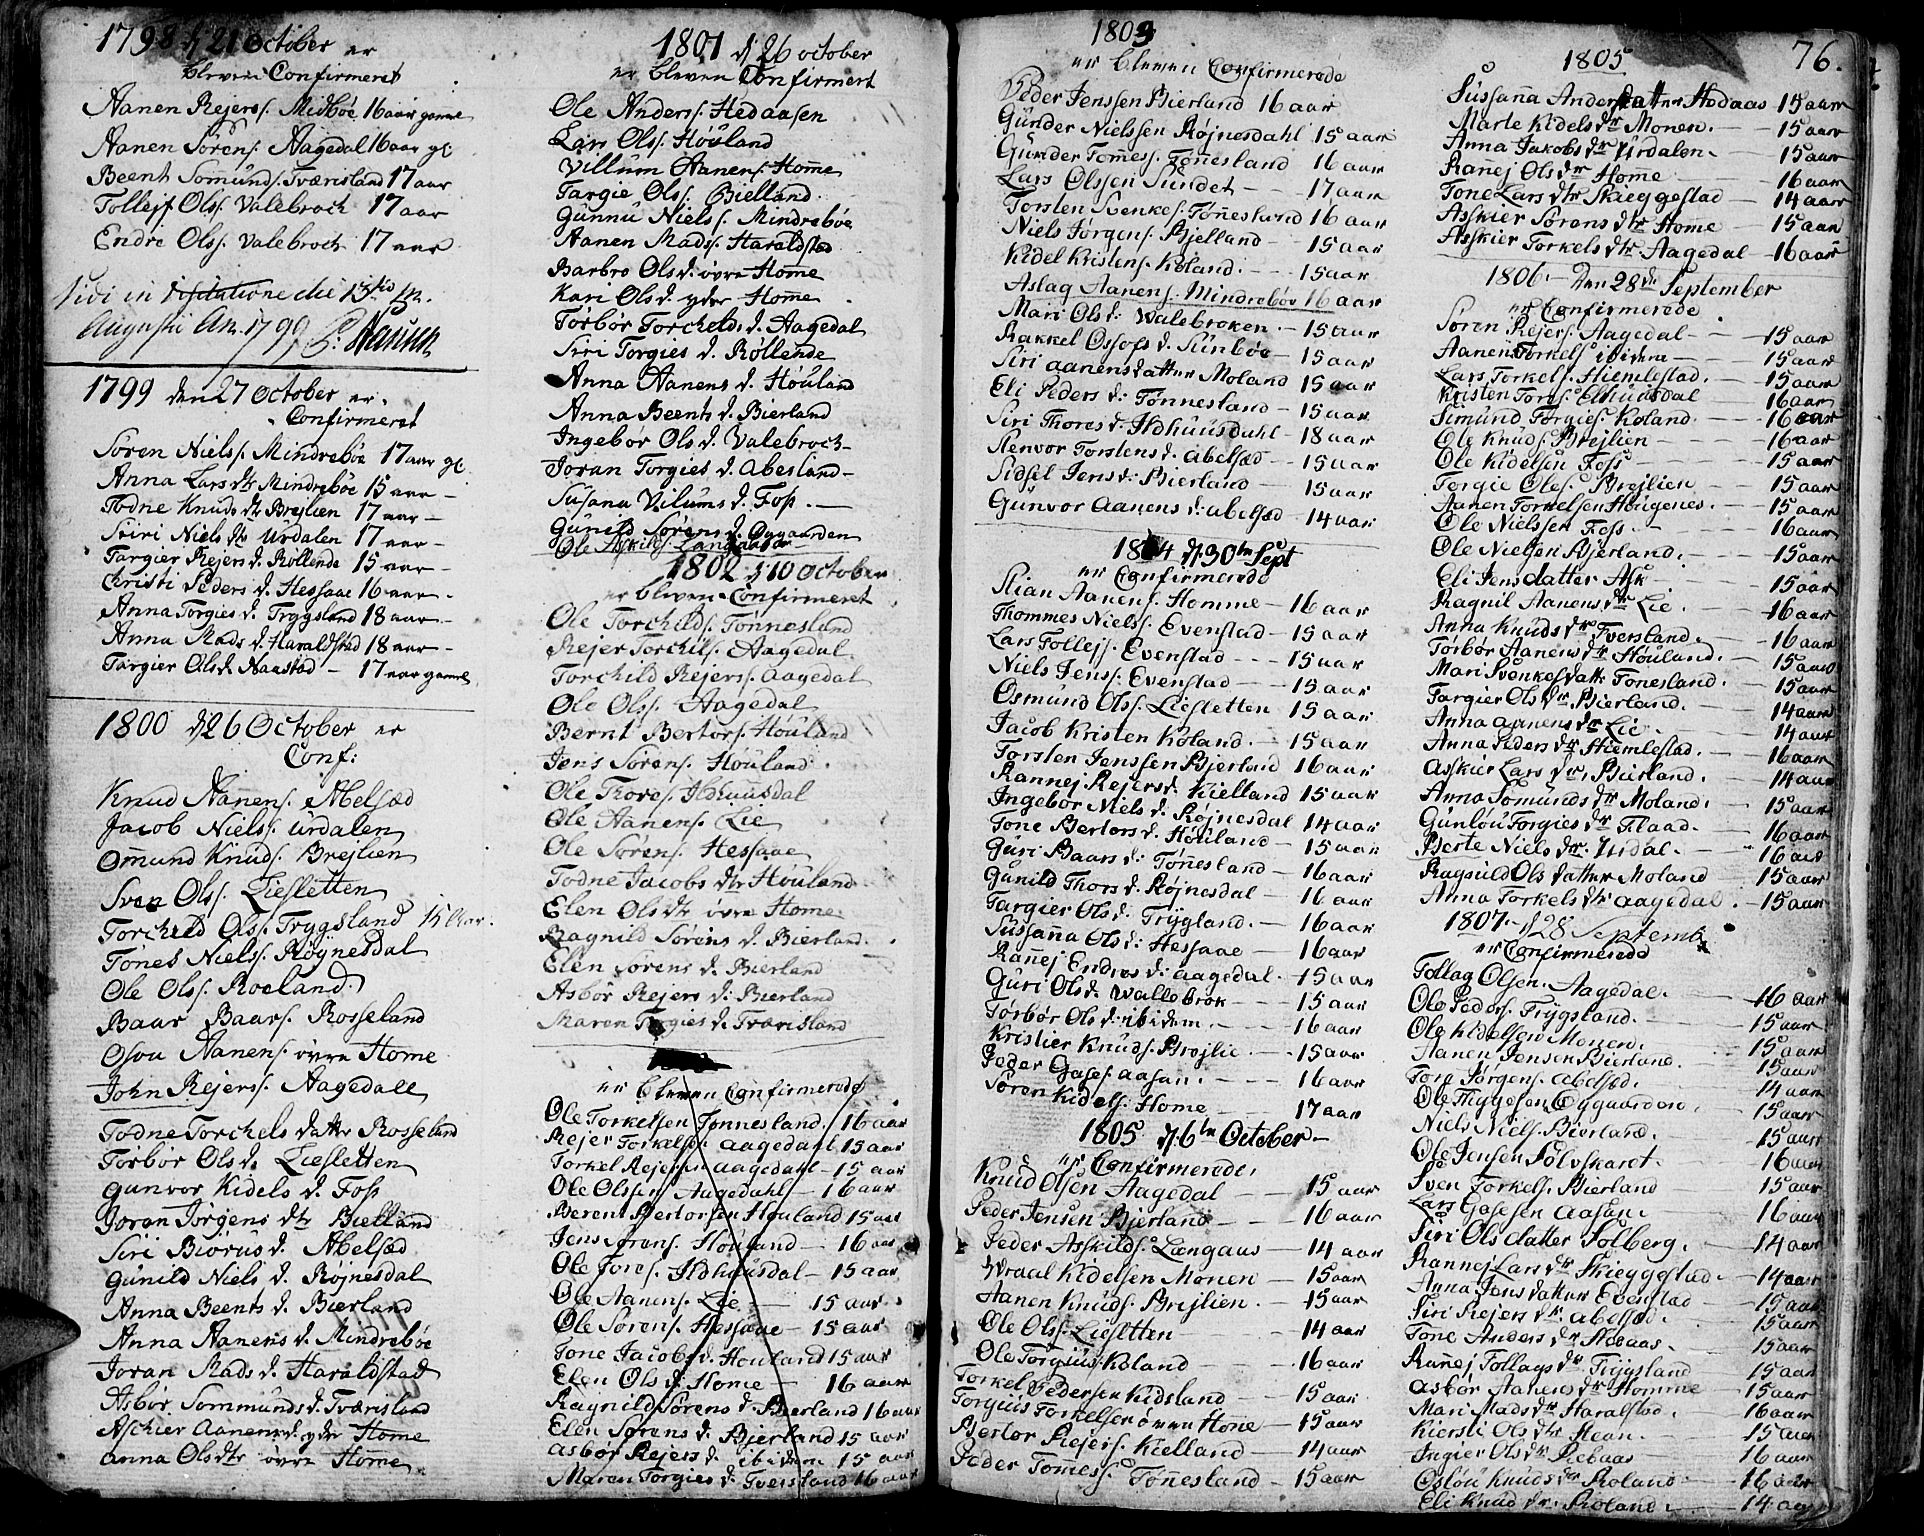 1798 d 21 October er
bleven Confirmeret
Aanen Rejers. Midböe 16 aar gamel
Aanen Sörens. Aagedal 16 aar gl
Beent Somunds. Tværisland 17 aar
Tollejf Ols. Valebroch 17 aar
Endre Ols. Valebroch 17 aar
Vidi in Visitatione die 13tio
Augusti An. 1799 P. Hansen
1799 den 27 October er
Confirmeret
Sören Niels. Mindreböe 17 aar gl
Anna Lars dtr Mindreböe 15 aar -
Todne Knuds dtr Brejlien 17 aar -
Siri Niels dtr Urdalen 17 aar -
Targier Rejers d. Röllende 15 aar -
Christi Peders d. Hessaae 16 aar -
Anna Torgies d. Trygsland 18 aar -
Anna Mads d. Haraldstad 18 aar -
Targier Ols d. Naastad - 17 aar gamel
1800 d 26 October er
Conf:
Knud Aanens. Abelsæd
Jacob Niels. Urdalen
Ommund Knuds. Brejlien
Sven Ols. Liesletten
Torchild Ols. Trygsland 15 Aar.
Tönes Niels. Röynesdal
Ole Ols. Roeland
Baar Baars. Rosseland
Osou Aanens. övre Home
John Rejers. Aagedall
Todne Torchels datter Rosseland
Törbör Ols d. Liesletten
Gunvor Kidels d. Foss
Joran Jörgens dtr Bielland
Siri Biörus d. Abelsæd
Gunild Niels d. Röjnesdal
Anna Beents d. Bierland
Anna Aanens d. Mindreböe
Joran Mads d. Haraldstad
Asbör Sommunds d. Tværisland
Aschier Aanens d. yder Home
Anna Ols dtr övre Home
1801 d 26 october
er bleven Confirmert
Ole Anders. Hedaasen
Lars Ols. Höuland
Villum Aanens. Home
Targie Ols. Bielland
Gunnu Niels. Mindreböe
Aanen Mads. Haraldstad
Barbro Ols d. övre Home
Kari Ols d. yder Home
Törbör Torchelds d. Aagedal
Siri Torgies d. Röllende
Anna Aanens d. Höuland
Anna Beents d. Bierland
Ingebör Ols d. Valebroch
Joran Torgies d. Abesland
Susana Vilums d. Foss
Gunild Sörens d. Oygaarden
Ole Askilds. Langaas
1802 d 10 October
er bleven Confirmeret
Ole Torchilds. Tönnesland
Rejer Torchils. Aagedal
Torchild Rejers. Aagedal
Ole Ols. Aagedal
Bernt Bertors. Höuland
Jens Sörens. Höuland
Ole Thores. Ildhuusdal
Ole Aanens. Lie
Ole Sörens. Hessaae
Todne Jacobs dtr Höuland
Elen Ols dtr övre Home
Ragnild Sörens d. Bierland
Elen Sörens d. Bierland
Asbör Rejers d. Bierland
Maren Torgies d. Tværisland
er bleven Confirmerede
Ole Torkelsen Tonnesland. 16 aar
Rejer Torkelsen Aagedahl 15 aar
Torkel Rejersen Aagedahl - 15 aar
Ole Olssen Aagedahl - 16 aar
Berent Bertorsen Höuland 15 aar
Jens Sörens. Höuland - 16 aar
Ole Tores. Ildhuusdal - 15 aar
Ole Aanens. Lie - 15 aar
Ole Sörens. Hessaae - 15 aar
Tone Jacobs d. Houland 15 aar
Elen Ols d. Home - 16 aar
Ragnild Sörens d. Bierland 16 aar
Elen Sörens d. Bierland 15 aar
Asbör Rejers d. ibidem 15 aar
Maren Torgies d. Tversland 16 aar
1803
er bleven Confirmerede
Peder Jenssen Bierland 16 aar
Gunder Nielssen Röjnesdahl 15 aar
Gunder Tomes. Tönesland 16 aar
Lars Olssen Sundet - 17 aar
Torsten Svenkes. Tönnesland 16 aar
Niels Jörgens. Bjelland - 15 aar
Kidel Kristens. Koland. - 15 aar
Aslag Aanens. Mindreböe 16 aar
Mari Ols d: Walebroken. - 15 aar
Rakkel Osofs d. Sünböe - 15 aar
Siri Aanensdatter Moland 15 aar
Eli Peders d: Tönnesland - 15 aar
Siri Thores d: Ildhuusdahl - 18 aar
Stenvor Torstens d: Abelsæd - 15 aar
Sidsel Jens d: Bierland - 15 aar
Gunvor Aanens d: Abelsæd - 14 aar
1804 d. 30te Sept
er Confirmerede
Stian Aanens. Homme - 16 aar
Thommes Niels. Evenstad - 15 aar
Lars Tollejs. Evenstad - - - 15 aar
Niels Jens. Evenstad - - 15 aar
Osmund Ols. Liesletten 15 aar
Jacob Kristen Koland. - 15 aar
Torsten Jenssen Bjerland 16 aar
Rannej Rejers d. Kielland 15 aar
Ingebör Niels d. Röjnesdal 14 aar
Tone Bertors d. Höuland - 15 aar
Guri Baars d: Tönnesland - 16 aar
Gunild Thors d. Röjnesdal - 16 aar
Targier Ols d. Trygland. - 16 aar
Sussanna Ols d: Hessaae - 16 aar
Rannej Endres d: Aagedal. - 15 aar
Guri Ols d. Wallebrok - - 15 aar
Törbör Ols d: ibidem. - - 16 aar
Kristier Knuds. Brejlie. - - 15 aar
Peder Gases. Aasan. - - - 16 aar
Sören Kidels. Home - - 17 aar
1805 d. 6te October -
er Confirmerede.
Knud Olsen Aagedal - - 15 aar
Peder Jensen Bjerland - - 16 aar
Peder Asskilds. Længaas - 14 aar
Wraal Kidelsen Monen - 15 aar
Aanen Knuds. Brejlien. - 15 aar
Ole Ols. Liesletten - - 14 aar
Ole Torgius. Koland - - 16 aar
Torkel Pedersen Kidsland - 15 aar
Torgius Torkelsen övre Hone - 15 aar
Bertor Rejers. Kielland - 14 aar
Peder Tomes. Tönesland - 15 aar
76.
1805
Sussana Andersdatter Hodaas 15 aar
Marte Kidels dtr Monen. - 15 aar
Anna Jakobs dtr Urdalen. - 15 aar
Ranej Ols dtr Home - 16 aar
Tone Lars dtr Skieggestad - 14 aar
Asskier Sörens dtr Home 15 aar
Asskier Torkels dtr Aagedal - 16 aar
1806. Den 28de September
er Confirmerede
Sören Rejers. Aagedal - - 15 aar
Aanen Torkels ibidem - - 15 aar
Lars Torkels. Hiemlestad. - 15 aar
Kristen Tores. Ildhuusdal 16 aar
Simund Torgies. Koland. - 16 aar
Ole Knuds. Brejlien - - 16 aar
Ole Kidelsen Foss - - 15 aar
Torgie Oles. Brejlien - 15 aar
Aanen Torkelsen Höugenes. - 15 aar
Ole Nielssen Foss. - - 16 aar
Ole Nielsen Bjerland. - 15 aar
Eli Jensdatter Ask - - 15 aar
Ragnil Aanens dtr Lie. - 16 aar
Anna Knuds dtr Tversland. - 16 aar
Törbör Aanens dtr Höuland. - 15 aar
Mari Svenkesdatt Tönesland. - 15 aar
Targier Ols dtr Bierland. - 14 aar
Anna Aanens dtr Lie. - 14 aar
Anna Peders dtr Hiemlestad. - 16 aar
Asskier Lars dtr. Bierland. - 14 aar
Anna Somunds dtr Moland. - 15 aar
Gunlöu Torgies dtr Flaad. - 16 aar
Berte Niels dtr: Urdal. - - 16 aar
Ragnild Ols datter Moland 15 aar
Anna Torkels dtr Aagedal. - 15 aar
1807. d 28 Septembr
er Confirmerede
Tollag Olsen. Aagedal. - 16 aar
Ole Peders. Trygsland. - 15 aar
Ole Kidelsen Monen. - 15 aar
Aanen Jensen Bierland. 15 aar
Tore Jörgens. Abelsæd. - 14 aar
Ole Thygesen Oygaarden. - 15 aar
Niels Niels. Bierland. - 15 aar
Ole Jensen Sölvskaret. - 16 aar
Sven Torkels. Bierland - 15 aar
Lars Gasesen Aasan. - 16 aar
Siri Ols datter Solberg. - 14 aar
Rannej Lars dtr Skieggestad. - 14 aar
Anna Jens datter Evenstad - 15 aar
Siri Rejers dtr. Abelsæd. - 15 aar
Tone Anders dtr Hobaas. - 15 aar
Rannej Tollags dtr Trygsland 15 aar
Asbör Aanens dtr Homme 15 aar
Mari Mads dtr Haralstad. - 16 aar
Kiersti Ols dtr Stean. - 15 aar
Ingier Ols dtr Rebaas - 16 aar
Oslöu Knuds dtr Roland - 16 aar
Eli Knud dtr. Roland. - 14 aar